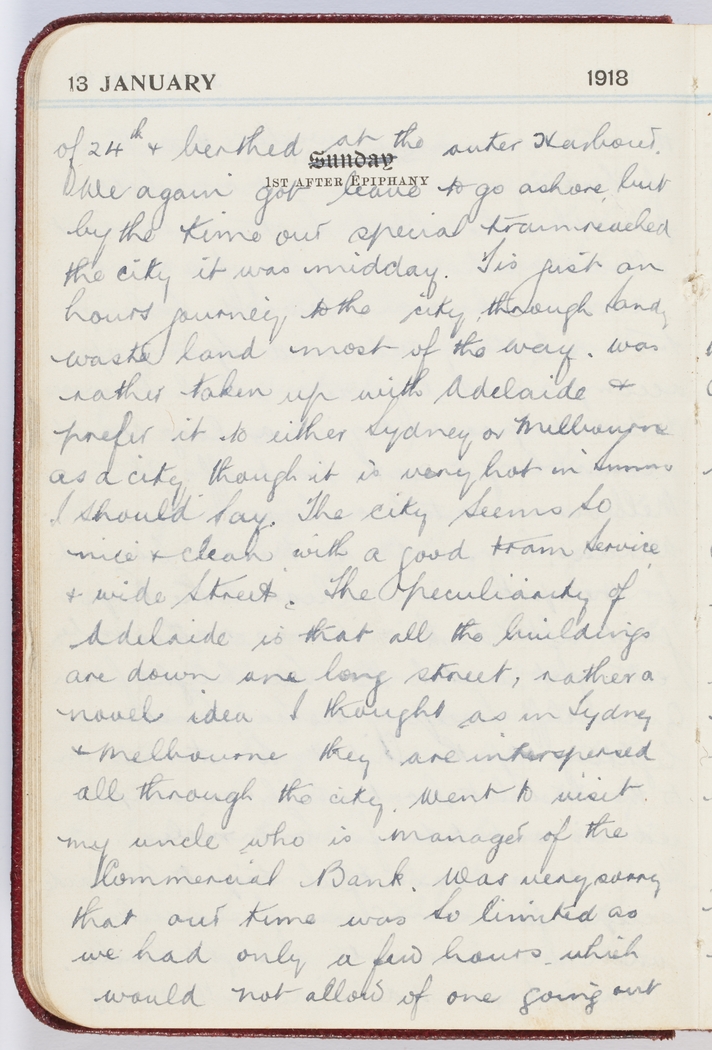 13 JANUARY 1918
of 24th & berthed at the outer Harbour.
Sunday
1ST AFTER EPIPHANY
We again got leave to go ashore, but
by the time our special tram reached
the city it was midday. Tis just an
hours journey to the city through sandy
waste land most of the way. was
rather taken up with Adelaide &
prefer it to either Sydney or Melbourne
as a city though it is very hot in summer
I should say. The city seems so
nice & clean with a good tram service
& wide street. The peculiarity of
Adelaide is that all the buildings
are down one long street, rather a
novel idea I thought as in Sydney
& Melbourne they are interspersed
all through the city. Went to visit
my uncle who is manager of the
Commercial Bank. Was very sorry
that our time was so limited as
we had only a few hours which
would not allow of one going out